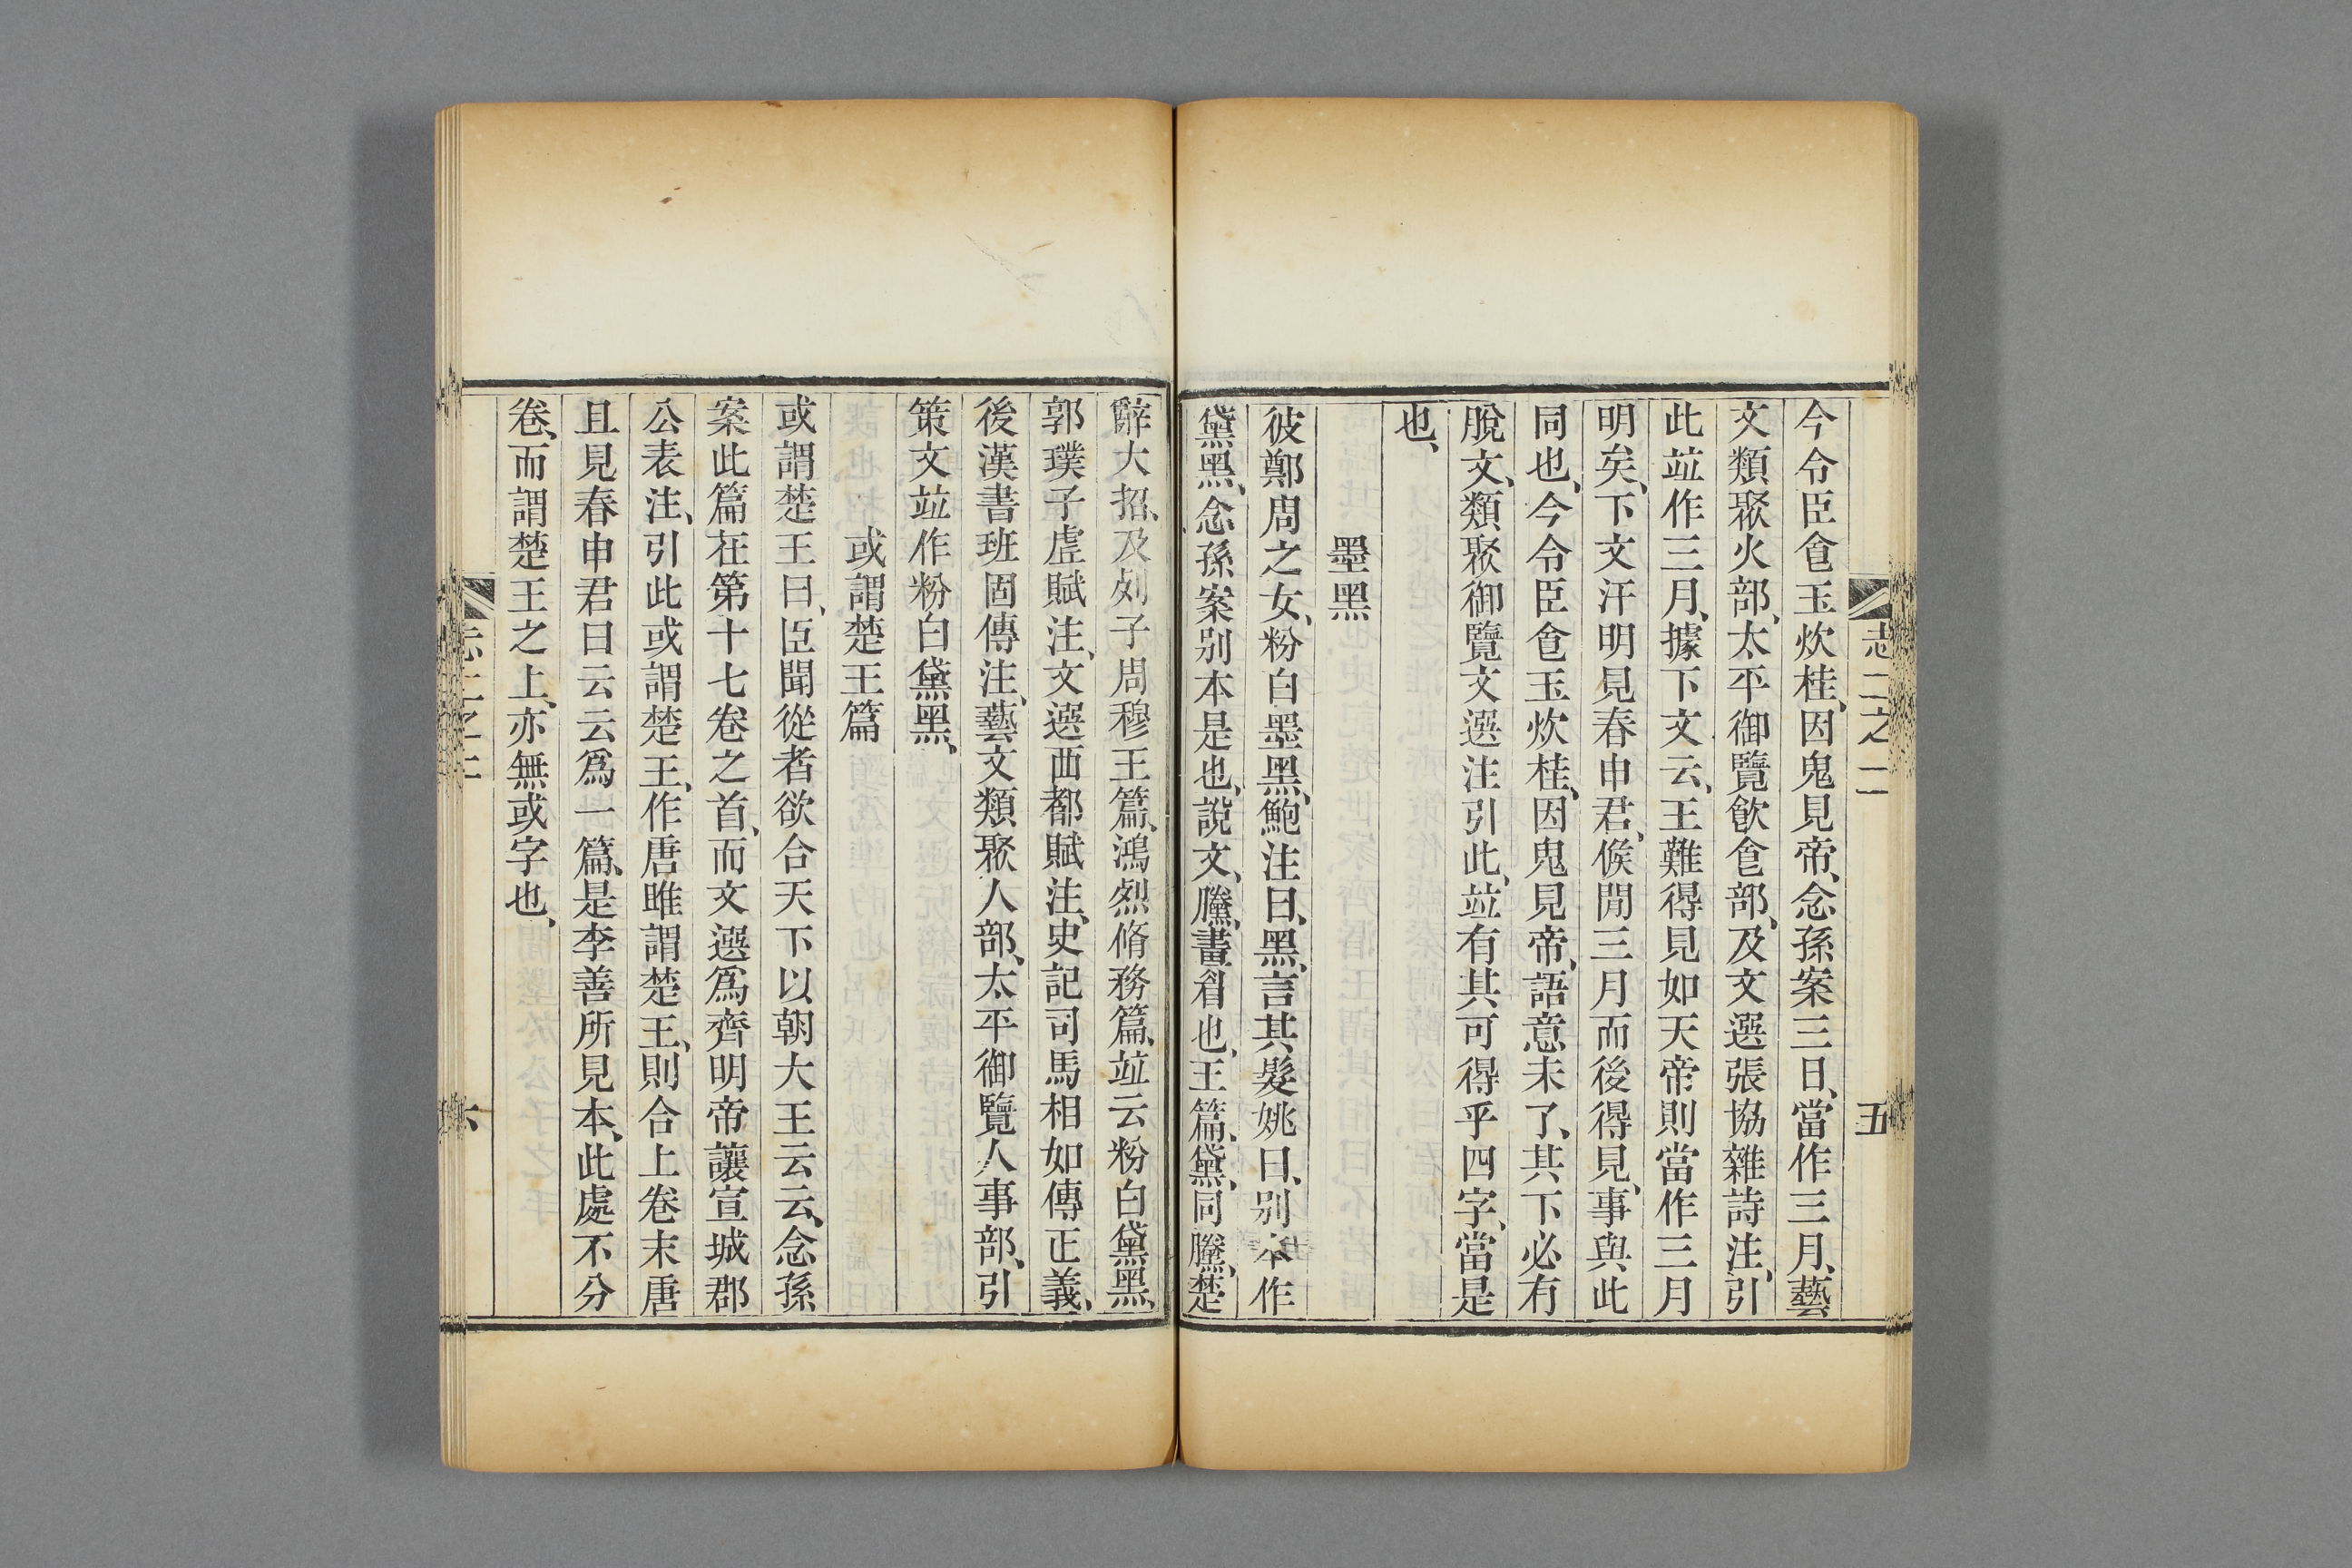 志二之二
五
今令臣食玉炊桂、因鬼見帝、念孫案三日、當作三月、藝
文類聚火部、太平御覽飮食部、及文選張協雜詩注、引
此竝作三月、據下文云、王難得見如天帝則當作三月
明矣、下文汗明見春申君、候閒三月而後得見、事與此
同也、今令臣食玉炊桂、因鬼見帝、語意未了、其下必有
脫文、類聚御覽文選注引此、竝有其可得乎四字、當是
也、
墨黑
彼鄭周之女、粉白墨黑、鮑注曰、黑、言其髮姚曰、別本作
黛黑、念孫案別本是也、說文、黱、畫眉也、玉篇、黛、同黱、楚
辭大招、及列子周穆王篇、鴻烈脩務篇、竝云粉白黛黑、
郭璞子虛賦注、文選西都賦注、史記司馬相如傳正義、
後漢書班固傳注、藝文類聚人部、太平御覽人事部、引
策文竝作粉白黛黑、
或謂楚王篇
或謂楚王曰、臣聞從者欲合天下以朝大王云云、念孫
案此篇在第十七卷之首、而文選爲齊明帝讓宣城郡
公表注、引此或謂楚王、作唐雎謂楚王、則合上卷末唐
且見春申君曰云云爲一篇、是李善所見本、此處不分
卷、而謂楚王之上、亦無或字也、
志二之二
六